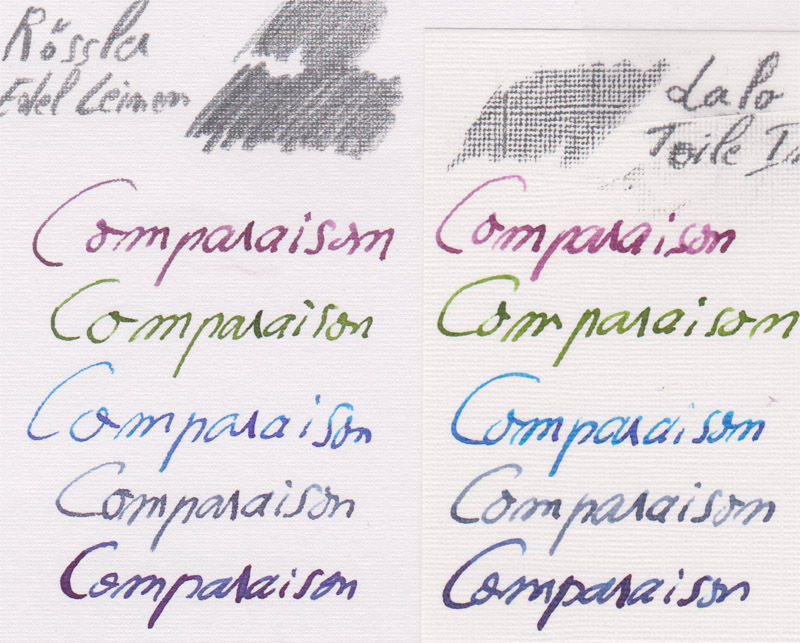 Rössler
Edel Leinen
Comparaison
Comparaison
Comparaison
Comparaison
Comparaison
Lalo
Toile
Comparaison
Comparaison
Comparaison
Comparaison
Comparaison